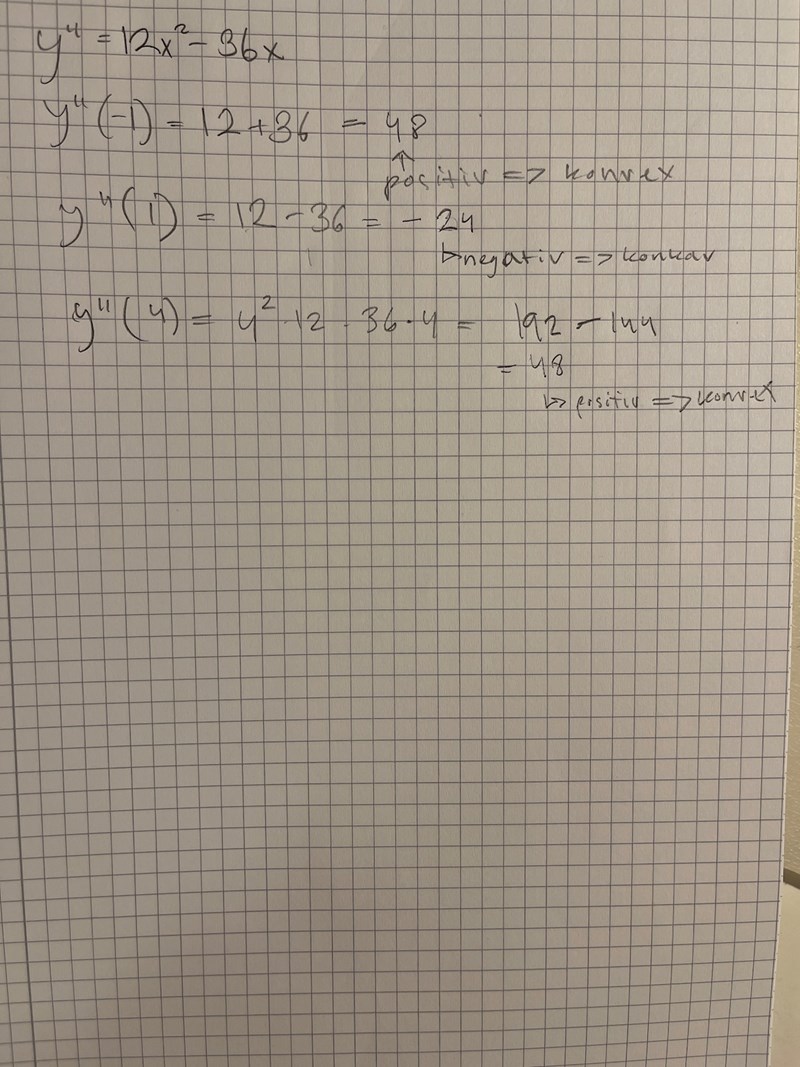 y'' = 12x² - 36x
y''(-1) = 12+36 = 48
↑
positiv => konvex
y''(1) = 12 - 36 = - 24
↳ negativ => konkav
y''(4) = 4² · 12 - 36 · 4 = 192 - 144
= 48
↳ positiv => konvex